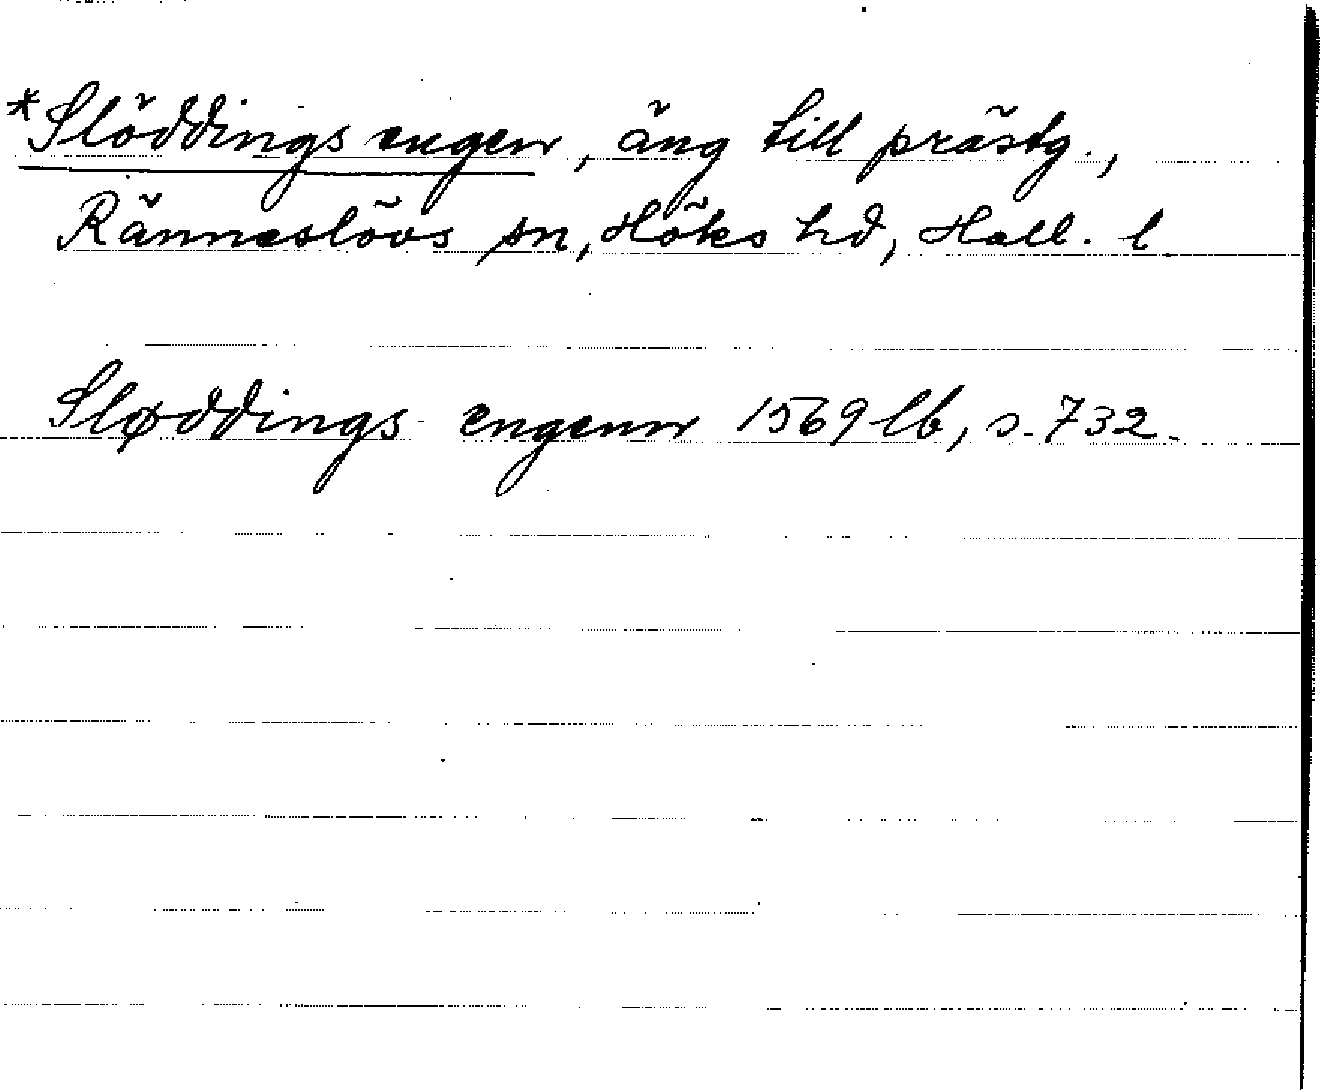 *Slöddings engen, äng till prästg.,
Ränneslövs sn, Höks hd, Hall. l
Sløddings engenn 1569 lb, s. 732.